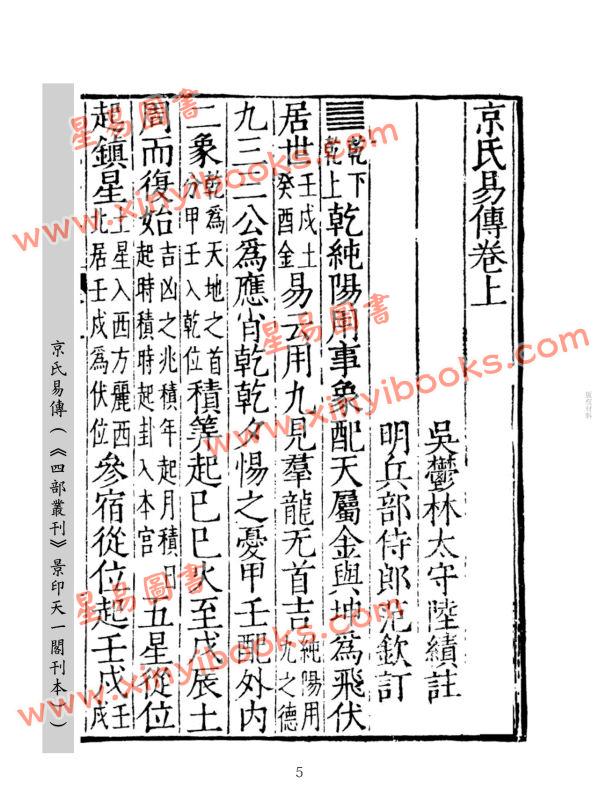 京氏易傳卷上
吳鬱林太守陸績註
明兵部侍郎范欽訂
䷀乾下乾上乾純陽用事象配天屬金與坤爲飛伏
居世壬戌土癸酉金易云用九見羣龍无首吉純陽用九之德
九三三公爲應肖乾乾夕惕之憂甲壬配外內
二象乾爲天地之首分甲壬入乾位積筭起己巳火至戊辰土
周而復始吉凶之兆積年起月積日起時積時起卦入本宫五星從位
起鎮星土星入西方麗西北居壬戌爲伏位參宿從位起壬戌壬戌
京氏易傳（《四部叢刊》景印天一閣刊本一）
5
星易圖書
www.xinyibooks.com
星易圖書
www.xinyibooks.com
星易圖書
www.xinyibooks.com